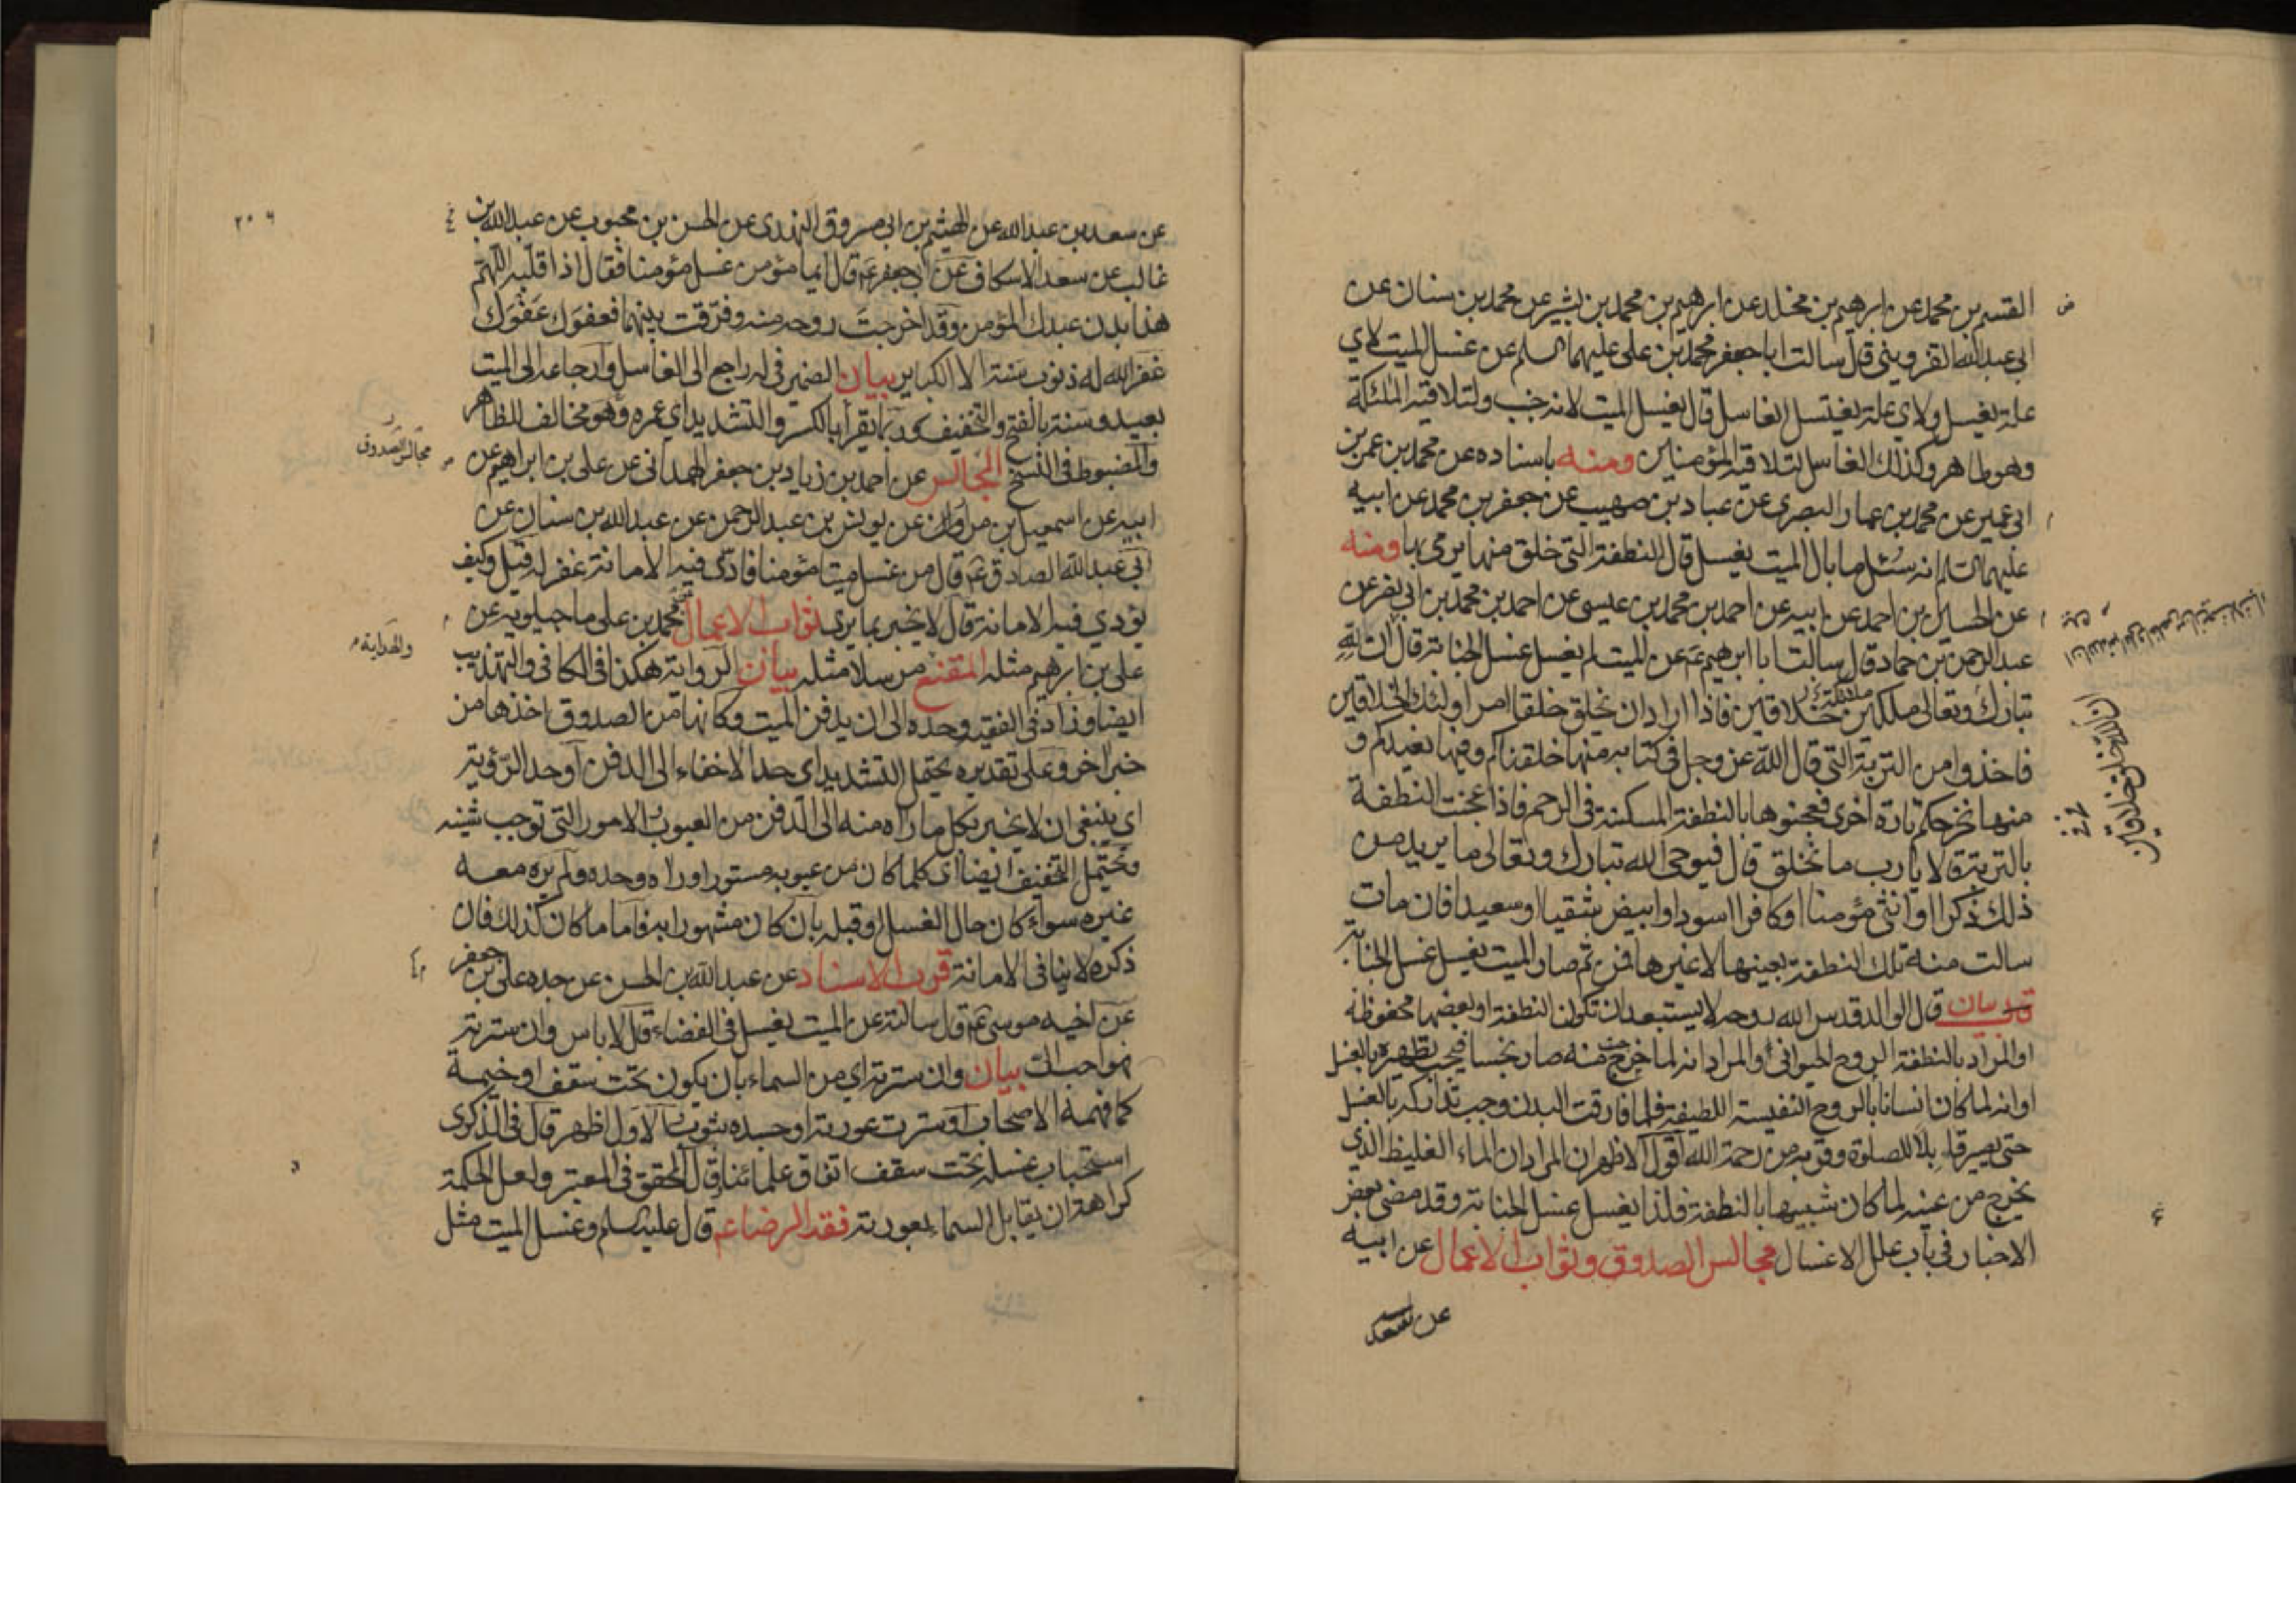 القسم بن محمد عن ابرهيم بن مخلد عن ابرهيم بن محمد بن بشير عن محمد بن سنان عن
ابي عبدالله القزويني قال سالت ابا جعفر محمد بن علي عليهما السلم عن غسل الميت لاي
علة يغسل ولاي علة يغتسل الغاسل قال يغسل الميت لانه جنب ولتلاقيه الملئكة
وهو طاهر وكذلك الغاسل لتلاقيه المؤمنين ومنه باسناده عن محمد بن عمر بن
ابي عمير عن محمد بن عمار البصري عن عباد بن صهيب عن جعفر بن محمد عن ابيه
عليهما السلم انه سئل ما بال الميت يغسل قال النطفة التي خلق منها يرمي بها ومنه
عن الحسين بن احمد عن ابيه عن احمد بن محمد بن عيسى عن احمد بن محمد بن ابي نصر عن
عبدالرحمن بن حماد قال سالت ابا ابرهيم ع عن الميت لم يغسل غسل الجنابة قال ان لله
تبارك وتعالى ملكين خلاقين فاذا اراد ان يخلق خلقا امر اولئك الخلاقين
فاخذوا من التربة التي قال الله عز وجل في كتابه منها خلقناكم وفيها نعيدكم و
منها نخرجكم تارة اخرى فعجنوها بالنطفة المسكنة في الرحم فاذا عجنت النطفة
بالتربة قالا يا رب ما تخلق قال فيوحي الله تبارك وتعالى ما يريد من
ذلك ذكرا او انثى مؤمنا او كافرا اسود او ابيض شقيا او سعيدا فان مات
سالت منه تلك النطفة بعينها لا غيرها فمن ثم صار الميت يغسل غسل الجنابة
بيان قال الوالد قدس الله روحه لا يستبعد ان تكون النطفة او بعضها محفوظة
او المراد بالنطفة الروح الحيواني او المراد انه لما خرج منه صار نجسا فيجب تطهيره بالغسل
او انه لما كان انسانا بالروح النفيسة اللطيفة فلما فارقت البدن وجب تداركه بالغسل
حتى يصير قابلا للصلوة وقربه من رحمة الله اقول الاظهر ان المراد ان الماء الغليظ الذي
يخرج من عينه لما كان شبيها بالنطفة فلذا يغسل غسل الجنابة وقد مضى بعض
الاخبار في باب علل الاغسال مجالس الصدوق وثواب الاعمال عن ابيه
عن سعد
ان لله تعالى خلاقين
٢٠٦
عن سعد بن عبدالله عن الهيثم بن ابي مسروق النهدي عن الحسن بن محبوب عن عبدالله بن
غالب عن سعد الاسكاف عن ابي جعفر ع قال ايما مؤمن غسل مؤمنا فقال اذا قلبه اللهم
هذا بدن عبدك المؤمن وقد اخرجت روحه منه وفرقت بينهما فعفوك عفوك
غفر الله له ذنوب سنة الا الكباير بيان الضمير في له راجع الى الغاسل وارجاعه الى الميت
بعيد وسنة بالفتح والتخفيف وربما يقرأ بالكسر والتشديد اي عمره وهو مخالف للظاهر
والمضبوط في النسخ المجالس عن احمد بن زياد بن جعفر الهمداني عن علي بن ابراهيم عن
مجالس الصدوق
ابيه عن اسمعيل بن مرار عن يونس بن عبدالرحمن عن عبدالله بن سنان عن
ابي عبدالله الصادق ع قال من غسل ميتا مؤمنا فادى فيه الامانة غفر له قيل وكيف
يؤدي فيه الامانة قال لا يخبر بما يرى ثواب الاعمال محمد بن علي ماجيلويه عن
والهداية
علي بن ابرهيم مثله المقنع مرسلا مثله بيان الرواية هكذا في الكافي والتهذيب
ايضا وزاد في الفقيه وحده الى ان يدفن الميت وكانها من الصدوق اخذها من
خبر اخر وعلى تقديره يحتمل التشديد اي حد الاخفاء الى الدفن او حد الرؤية
اي ينبغي ان لا يخبر بكل ما راه منه الى الدفن من العيوب الامور التي توجب شينه
ويحتمل التخفيف ايضا اي كلما كان من عيوبه مستورا وراه وحده ولم يره معه
غيره سواء كان حال الغسل او قبله بان كان مشهورا به فاما ما كان كذلك فان
ذكره لا ينافي الامانة قرب الاسناد عن عبدالله بن الحسن عن جده علي بن جعفر
عن اخيه موسى ع قال سالته عن الميت يغسل في الفضاء قال لا باس وان ستر بستر
فهو احب الي بيان وان ستر بستر اي من السماء بان يكون تحت سقف او خيمة
كما فهمه الاصحاب او سترت عورته او جسده بثوب والاول اظهر قال في الذكرى
استحباب غسله تحت سقف اتفاق علمائنا قال المحقق في المعتبر ولعل الحكمة
كراهة ان يقابل السماء بعورته فقه الرضا ع قال عليه السلم وغسل الميت مثل